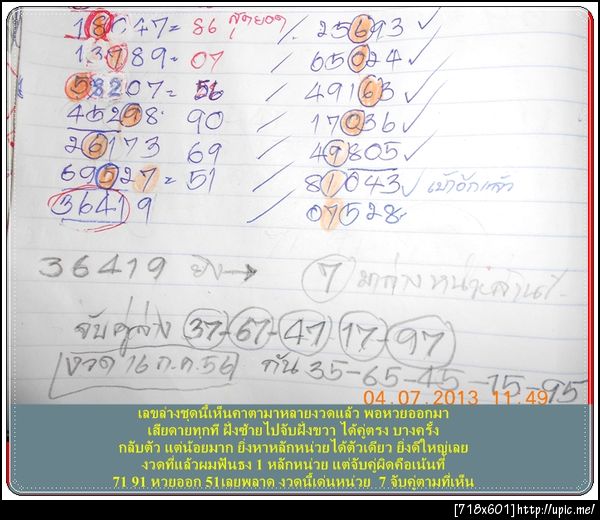 18047= 86 สุดยอด / 25693 ✓
13789= 07 / 65024 ✓
53207= 56 / 49163 ✓
45298 90 / 17036 ✓
26173 69 / 49805 ✓
69527= 51 / 81043 ✓
36419 / 07528
36419 ยิง→ 7 มาล่าง
จับคู่ล่าง 37-67-47-17-97
งวด 16 ก.ค. 56 กัน 35-65-45-15-95
04.07.2013 11:49
เลขล่างชุดนี้เห็นคาตามาหลายงวดแล้ว พอหวยออกมา
เสียดายทุกที ฝั่งซ้ายไปจับฝั่งขวา ได้คู่ตรง บางครั้ง
กลับตัว แต่น้อยมาก ยิ่งหาหลักหน่วยได้ตัวเดียว ยิ่งดีใหญ่เลย
งวดที่แล้วผมฟันธง 1 หลักหน่วย แต่จับคู่ผิดคือเน้นที่
71 91 หวยออก 51เลยพลาด งวดนี้เด่นหน่วย 7 จับคู่ตามที่เห็น
[718x601] http://upic.me/